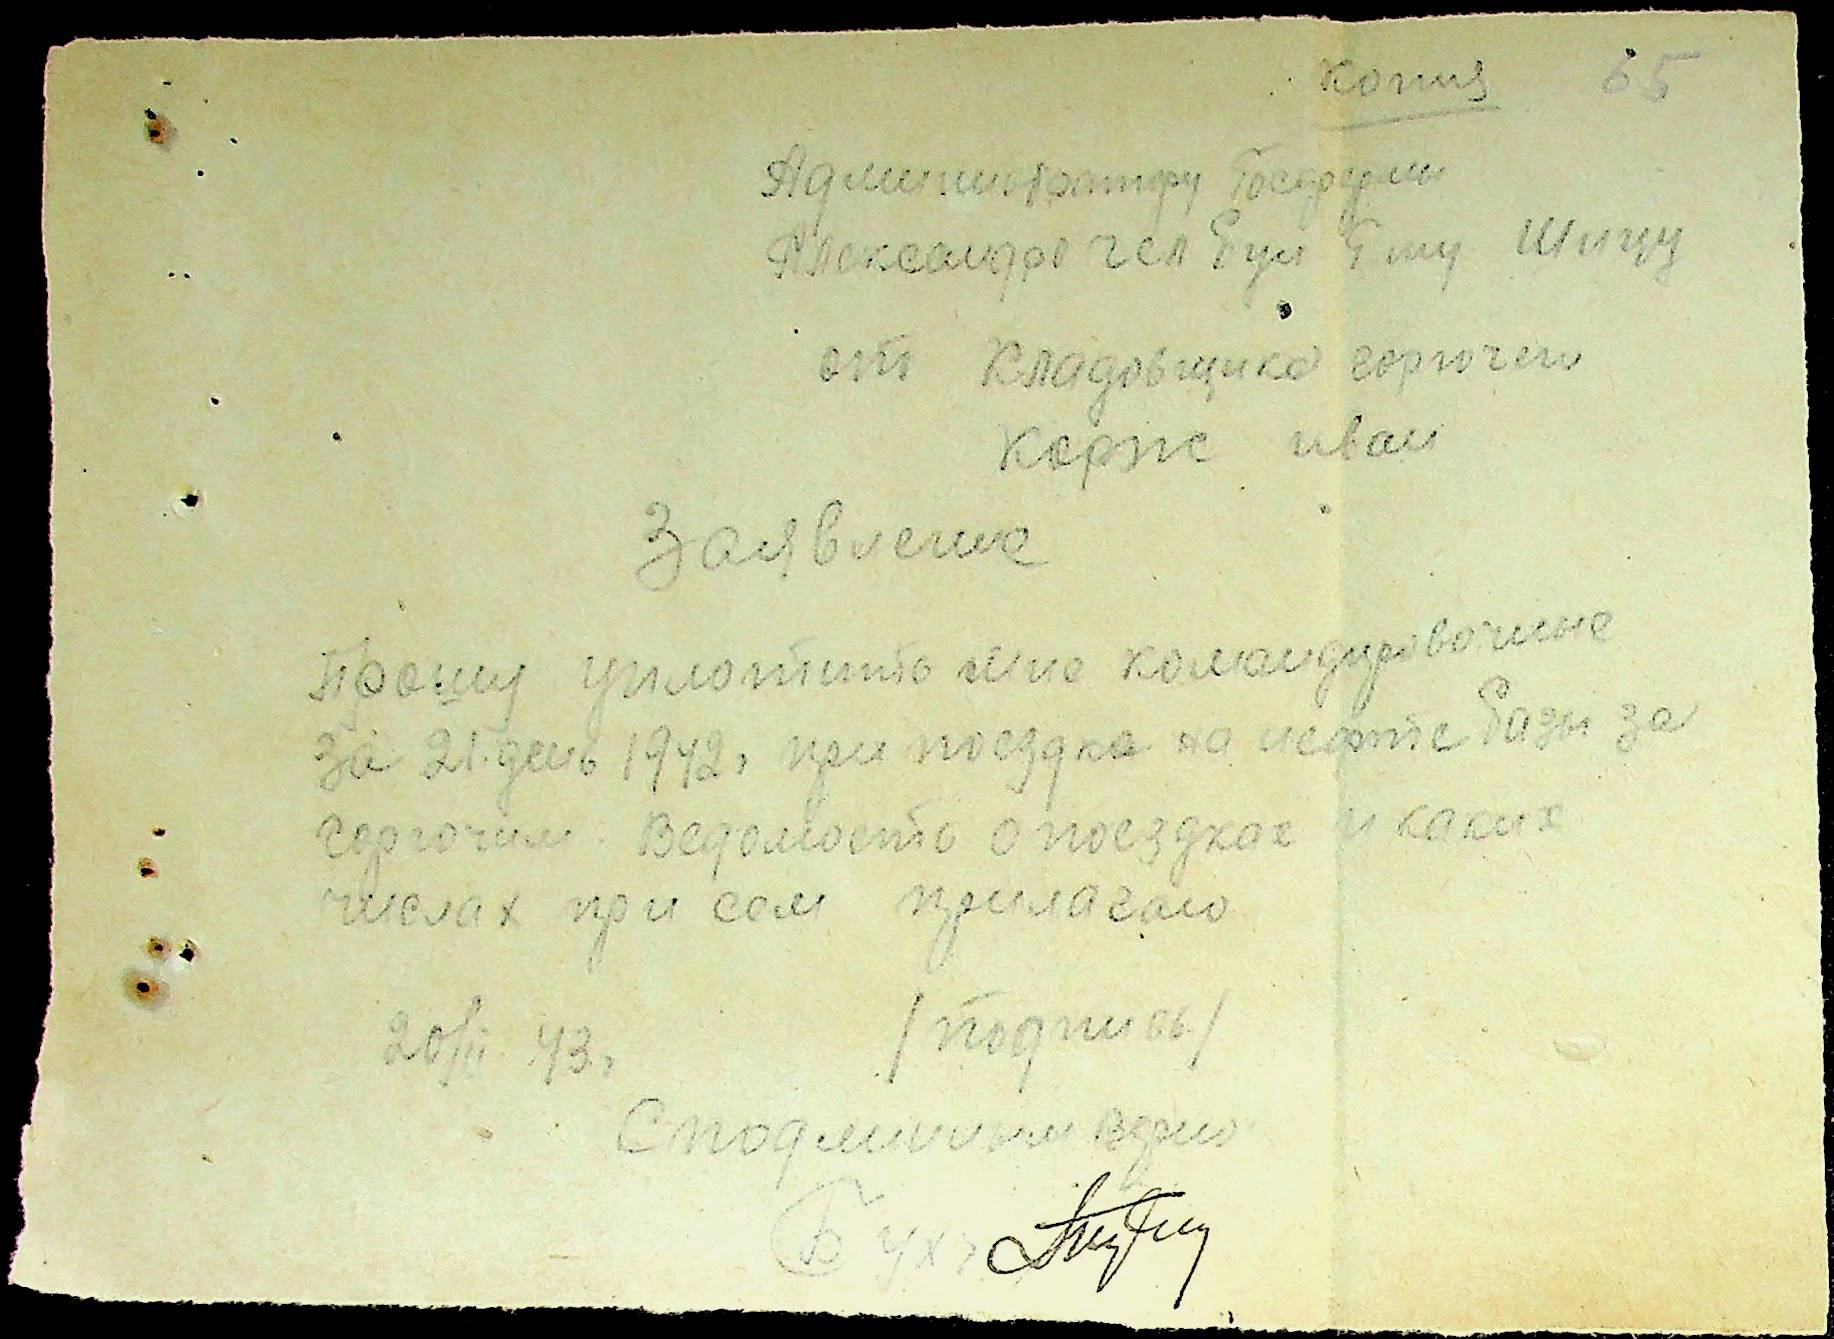 Копия 65
Администратору Госфермы
Александро чел бум Г-ну Шицу
от Кладовщика горючего
Корж иван
Заявление
Прошу уплотить мне командировочные
за 21 день 1942, при поездка на нефте базы за
горючим. Ведомость о поездках и каких
числах при сем прилагаю
20/III 43,
/подпись/
С подлинным верно
Бух,